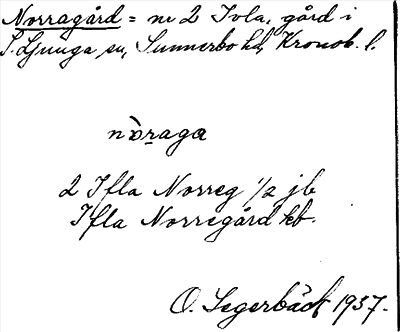 Norragård = nr 2 Ivla, gård i
S. Ljunga sn, Sunnerbo hd, Kronob. l.
nòraga
2 Ifla Norreg 1/2 jb
Ifla Norregård kb.
O. Segerbäck 1937.